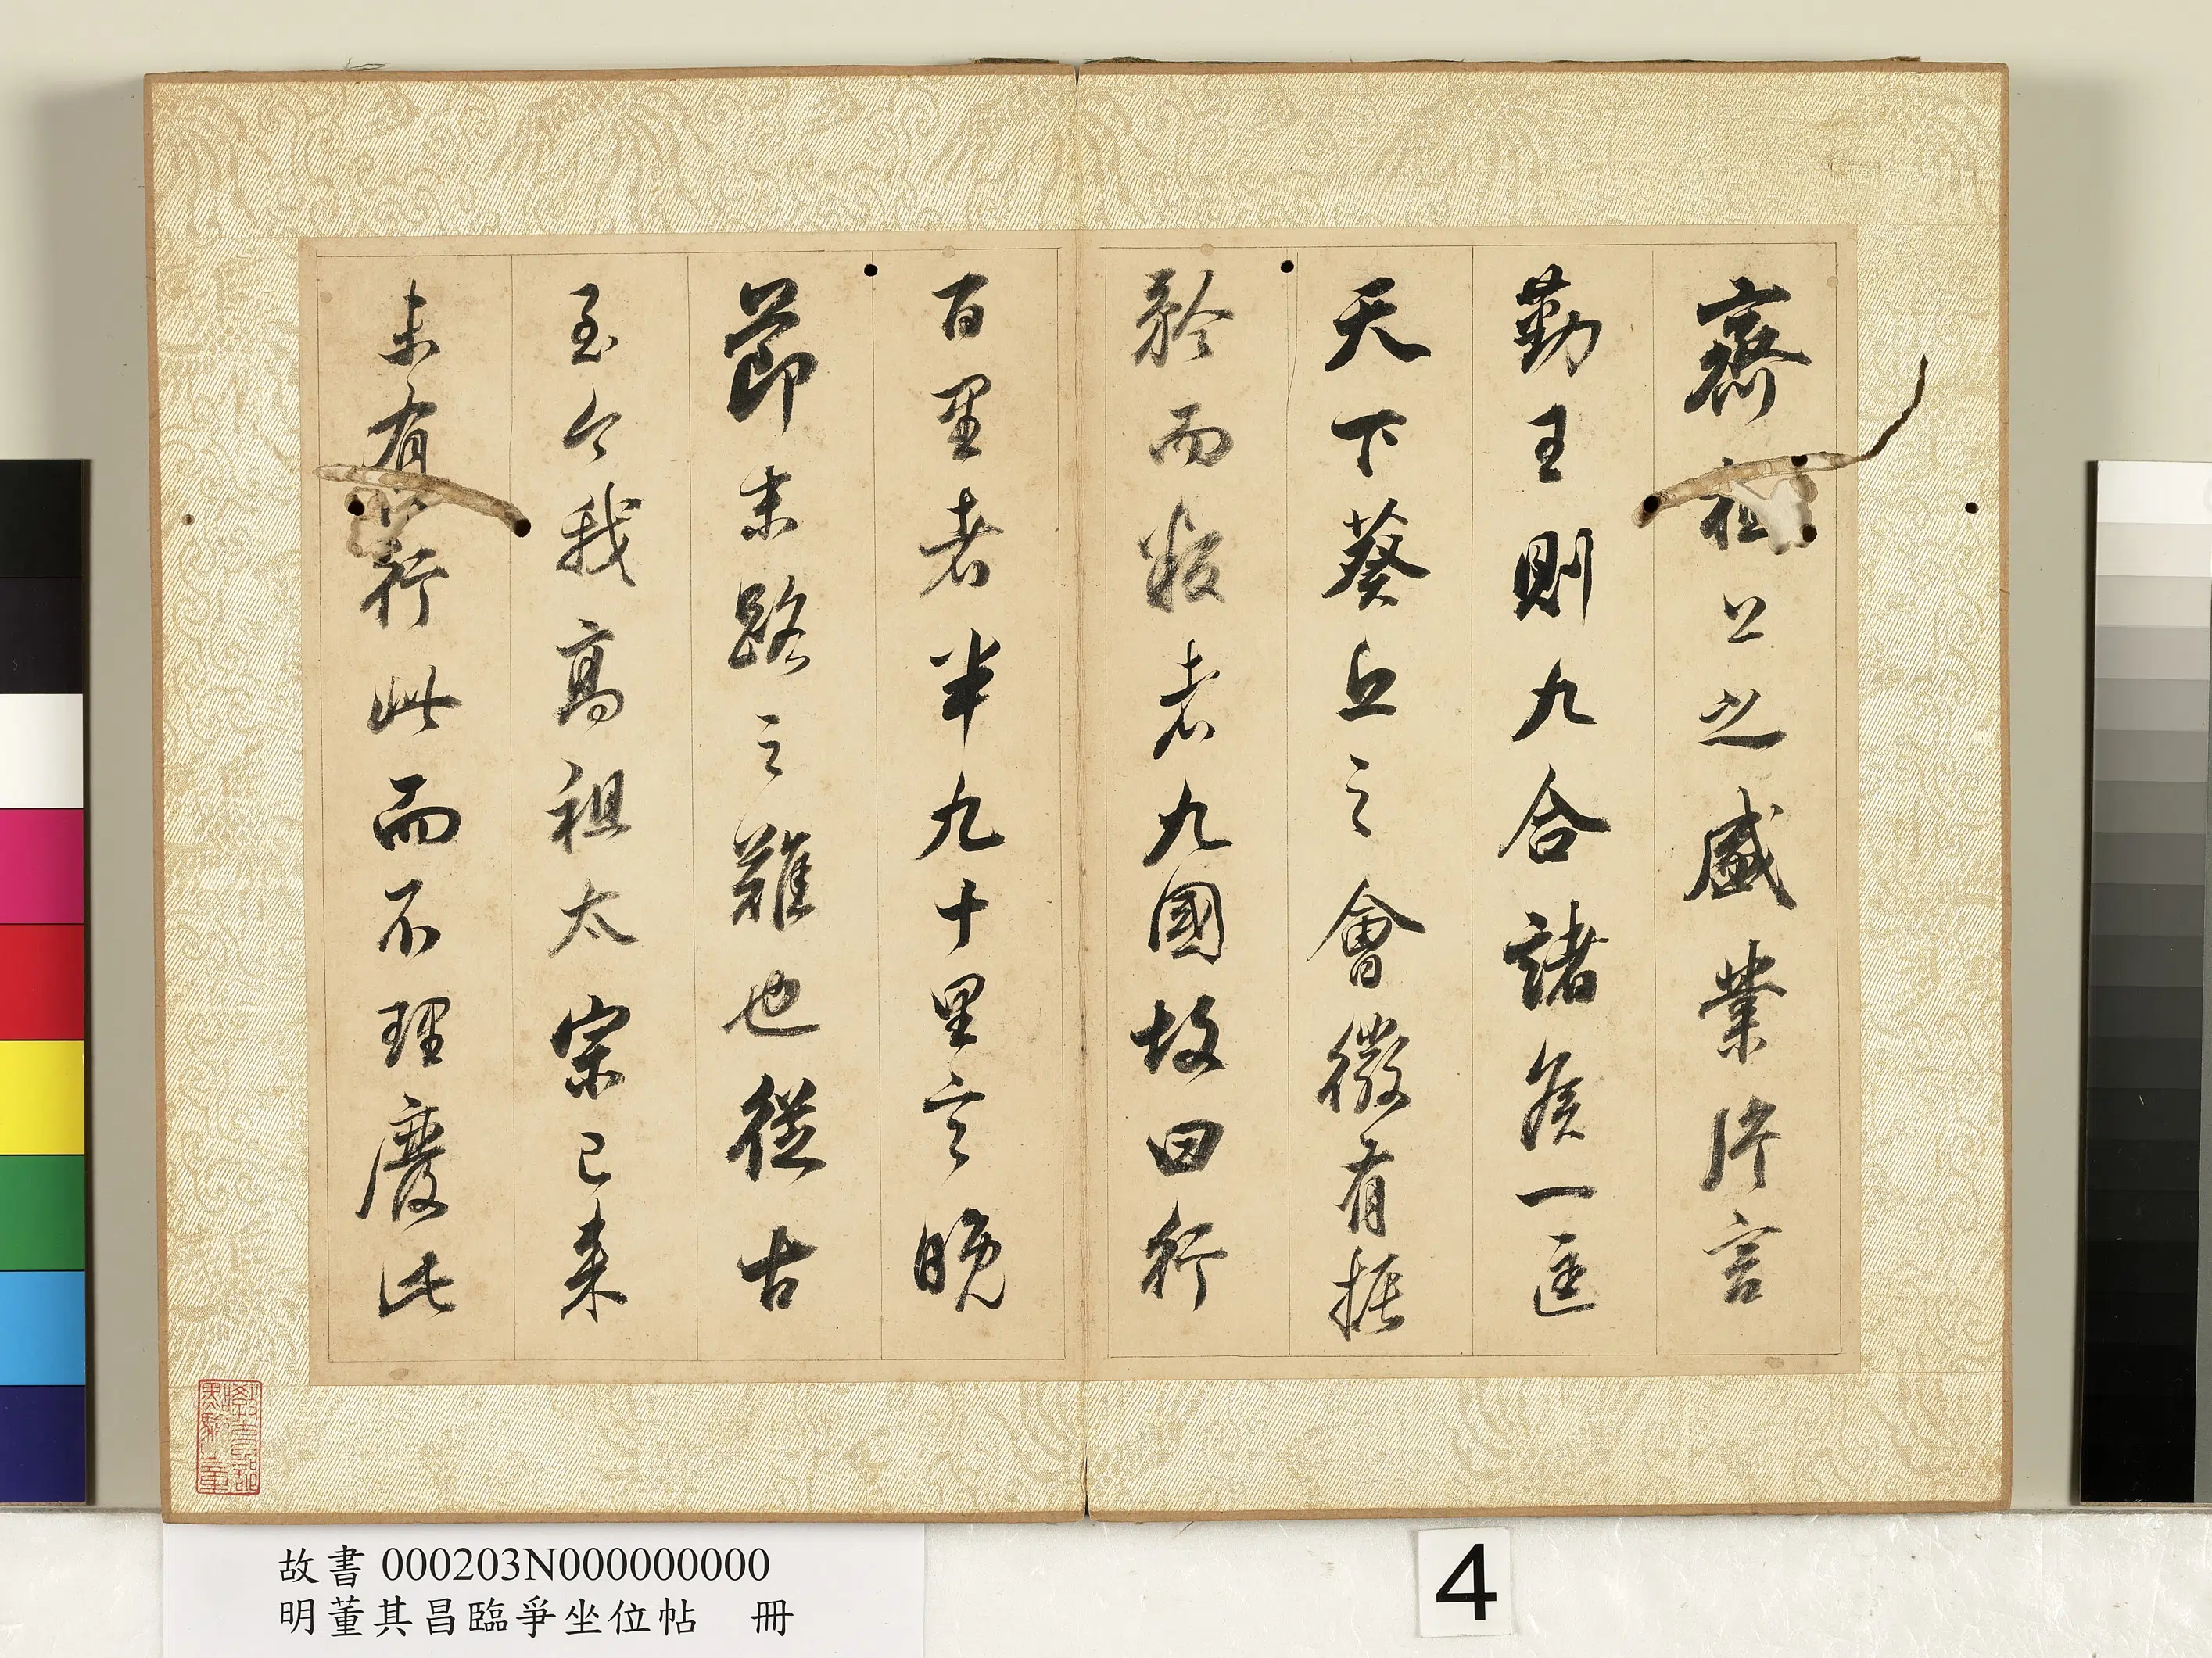 齊桓公之盛業片言
勤王則九合諸侯一匡
天下葵丘之會微有振
矜而叛者九國故曰行
百里者半九十里言晚
節末路之難也從古
至今我高祖太宗已來
未有行此而不理廢此
故書 000203N000000000
明董其昌臨爭坐位帖 冊
4